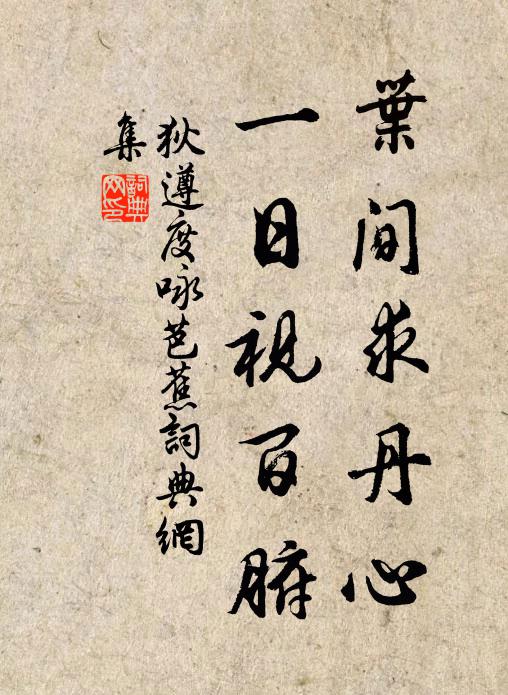 葉間求丹心
一日視百腑
狄遵度咏芭蕉詞典網
集
詞典
网印